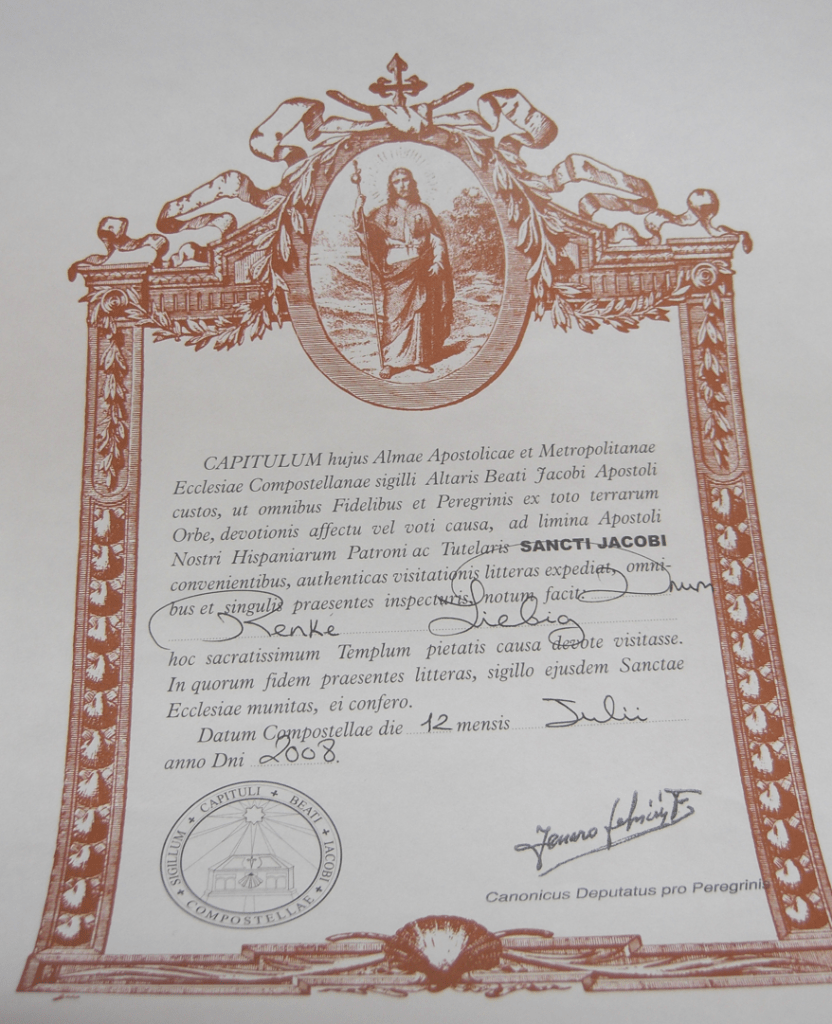 CAPITULUM hujus Almae Apostolicae et Metropolitanae
Ecclesiae Compostellanae sigilli Altaris Beati Jacobi Apostoli
custos, ut omnibus Fidelibus et Peregrinis ex toto terrarum
Orbe, devotionis affectu vel voti causa, ad limina Apostoli
Nostri Hispaniarum Patroni ac Tutelaris SANCTI JACOBI
convenientibus, authenticas visitationis litteras expediat, omni-
bus et singulis praesentes inspecturis, notum facit: Dnum
Renke Liebig
hoc sacratissimum Templum pietatis causa devote visitasse.
In quorum fidem praesentes litteras, sigillo ejusdem Sanctae
Ecclesiae munitas, ei confero.
Datum Compostellae die 12 mensis Julii
anno Dni 2008.
SIGILLUM + CAPITULI + BEATI + IACOBI + COMPOSTELLAE +
Canonicus Deputatus pro Peregrinis